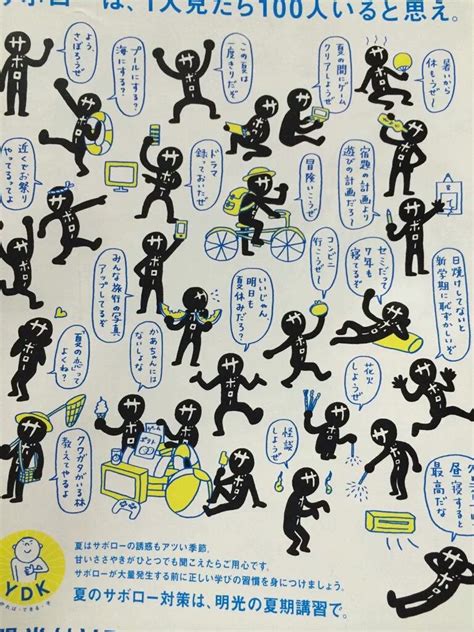 サボローは、1人見たら100人いると思え。
よう、
さぼろうぜ
プールにする?
海にする?
この夏は
一度きりだぞ
夏の間にゲーム
クリアしようぜ
暑いから
休もうぜ?
近くでお祭り
やってるってよ
ドラマ
録っておいたぜ
冒険いこうぜ
宿題の計画より
遊びの計画だろ?
みんな旅行の写真
アップしてるぞ
いいじゃん、
明日も
夏休みだろ?
コンビニ
行こうぜ?
セミだって
7年も
寝てるぞ
日焼けしてないと
新学期に恥ずかしいぞ
夏の恋って
よくね?
かあちゃんには
ないしょな
花火
しようぜ
怪談
しようぜ
クワガタがいる林
教えてやるよ
昼寝すると
最高だな
サボロー
YDK
夏はサボローの誘惑もアツい季節。
甘いささやきがひとつでも聞こえたらご用心です。
サボローが大量発生する前に正しい学びの習慣を身につけましょう。
夏のサボロー対策は、明光の夏期講習で。